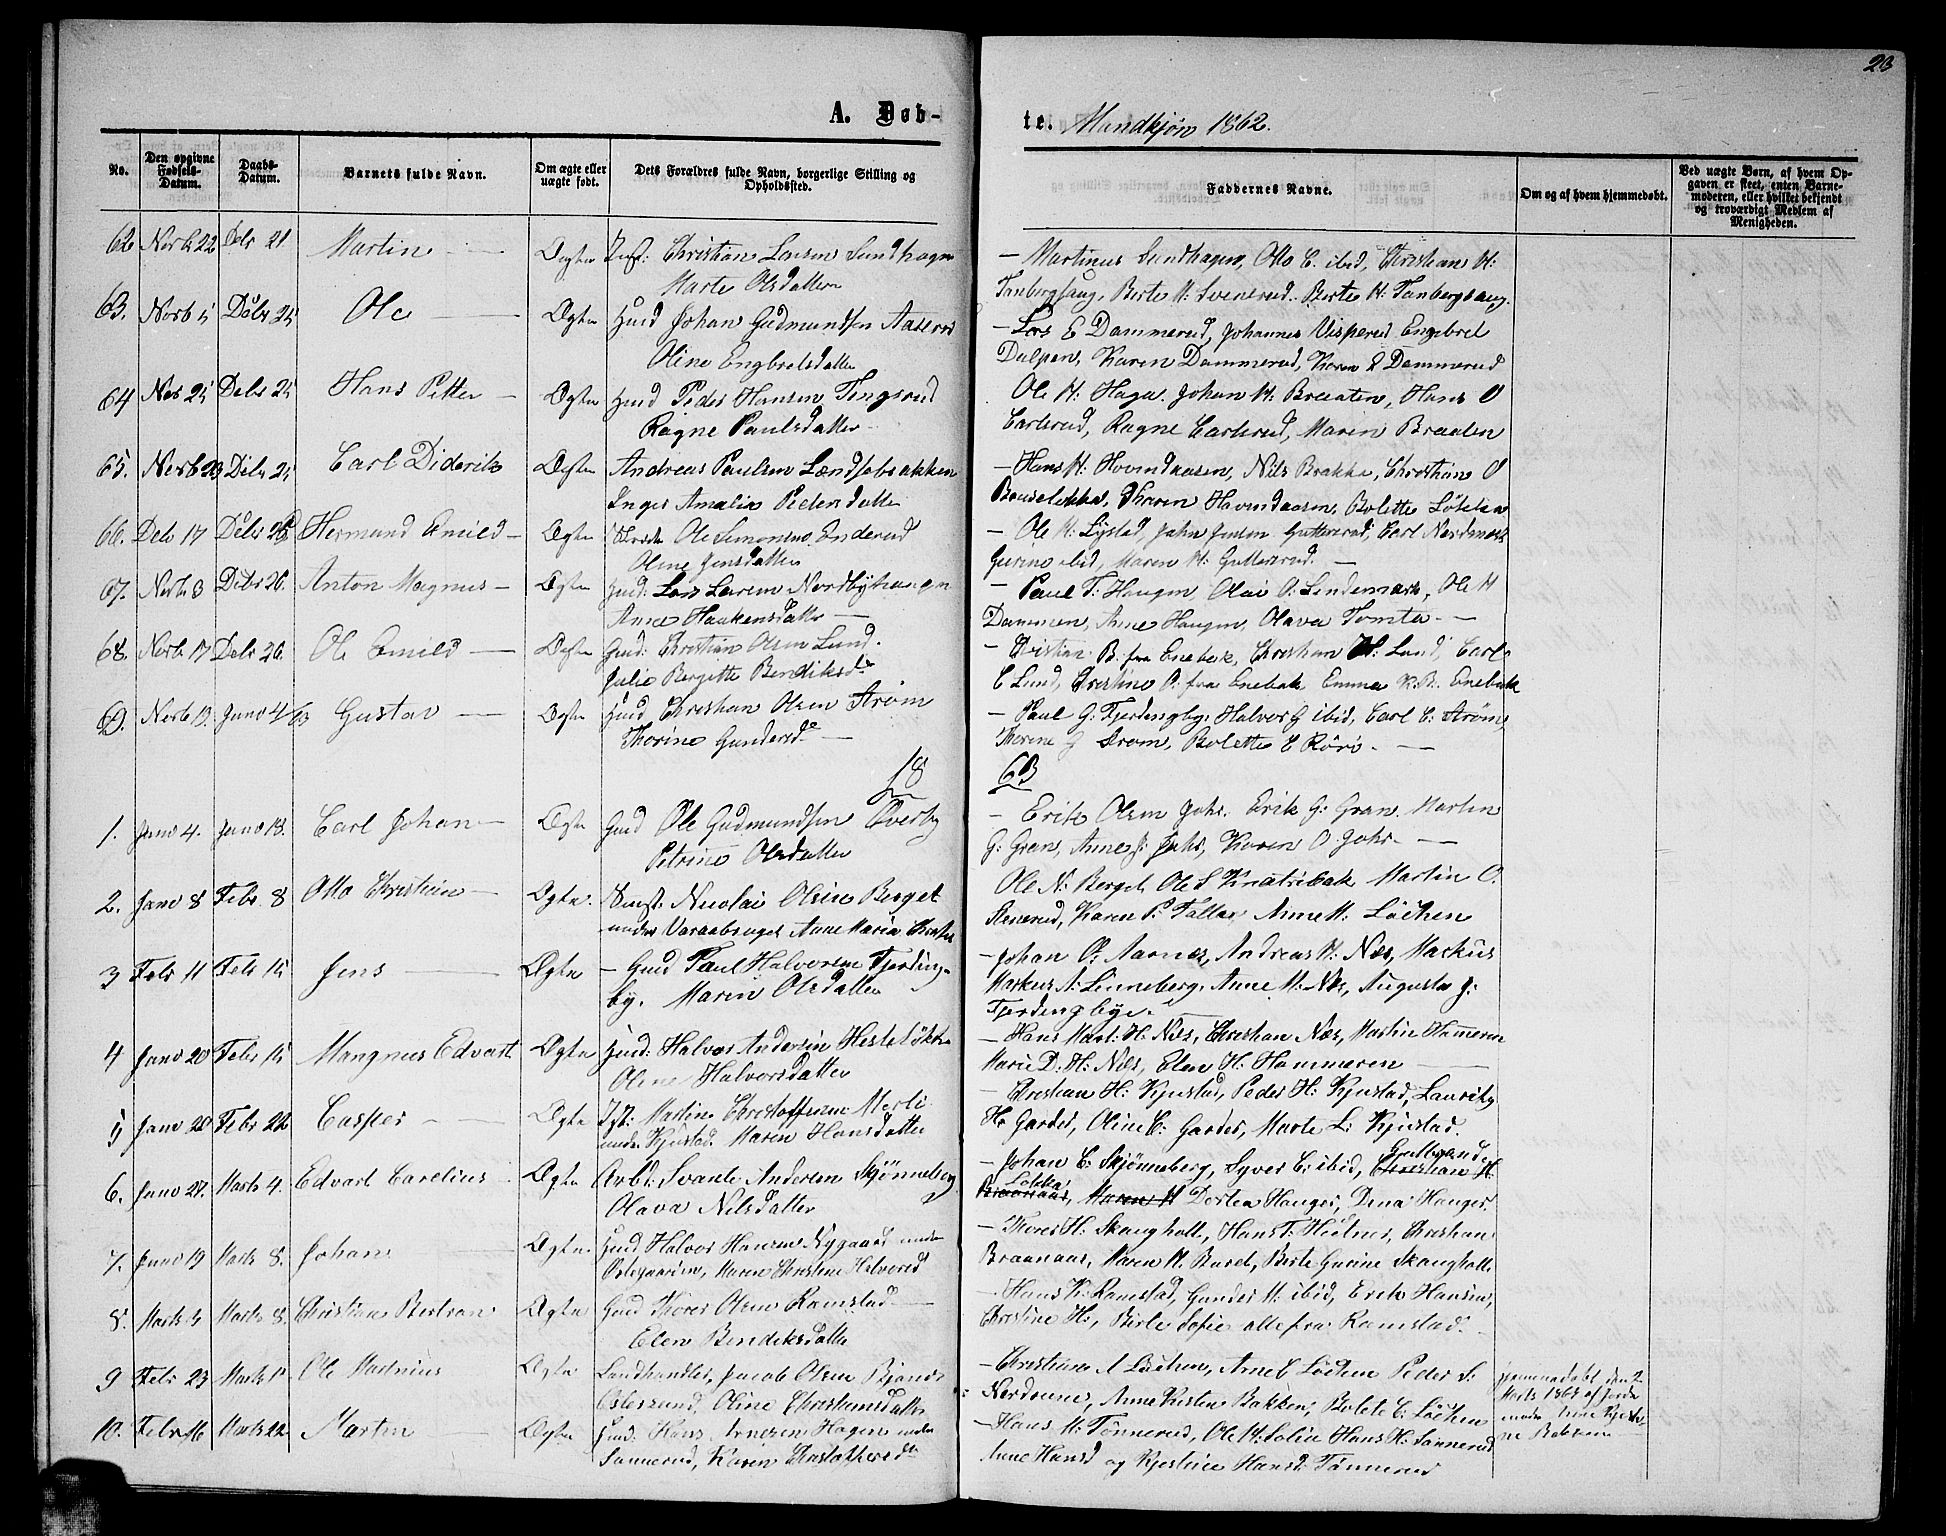 23
A. Døb-
te. Mandkjøn 1862.
No.
Den opgivne Fødsels-Datum.
Daabs-Datum.
Barnets fulde Navn.
Om ægte eller uægte født.
Dets Forældres fulde Navn, borgerlige Stilling og Opholdssted.
Faddernes Navne.
Om og af hvem hjemmedøbt.
Ved uægte Børn, af hvem Opgaven er skeet, enten Barnemoderen, eller hvilket bekjendt og troværdigt Medlem af Menigheden.
62 Novb 22 Debr 21 Martin Ægte Inst: Christian Larsen Sundhagen
Marte Olsdatter
- Martinus Sundhagen, Otto C. ibid, Christian H:
Tanbergsaug, Berte H: Svenerud. Berte H: Tanbergsaug.
63. Novb 5 Debr 25 Ole Ægte Huusd Johan Gudmundsen Aaserud
Oline Engbretsdatter
- Lars E Dammerud, Johannes Visperud Engebret
Dalpen, Karen Dammerud, Karen E Dammerud
64 Nov 25 Debr 25 Hans Petter Ægte Huusd Peder Hansen Tingsrud
Ragne Paulsdatter
Ole H: Haga. Johan H: Braaten, Hans O
Carlsrud, Ragne Carlsrud, Maren Braaten
65. Novb 23 Debr 25 Carl Diderik Ægte Andreas Paulsen
Inger Amalia Pedersdatter
- Hans H: Hovindaasen, Nils Brakka, Christian O
Karen Hovindaasen, Bolette Løkken
66. Deb 17 Debr 26 Hermund Emild Ægte Ole Simonsen Enderud
Oline Jensdatter
- Ole H: Lystad, John Jensen Gutterud, Carl Nordmork
Gurine ibid, Maren H: Gutterud.
67. Novb 3 Debr 26. Anton Magnus Ægte Huusd: Lars Larsen Nordbyhaugen
Anne Haakensdatter
- Paul T: Haugen, Olai O: Lindemark, Ole H
Dammen, Anne Haugen, Olava Tomta.
68. Novb 17 Debr 26. Ole Emild Ægte Gaard: Christian Olsen Lund.
Julie Bergitte Bendiksd
- Christian B. fra Enebak, Christian H: Lund, Carl
C Lund, Christine O: fra Enebak Emma K. B. Enebak
69. Novb 12. Janv 4/63 Gustav Ægte Huusd Christian Olsen Strøm
Thorine Gundersd
- Paul G: Fjerdingby, Halvor G ibid, Carl C: Strøm,
Thorine G Strøm, Bolette E Røri.
18
63
1. Janv 4. Janv 18. Carl Johan Ægte Gaard Ole Gudmundsen Øverby
Petrine Olsdatter
- Erik Olsen Jahr. Erik G: Gran. Martin
G: Gran, Anne J: Jahr, Karen O Jahr.
2. Janv 8 Febr 8 Otto Christian Ægte. Nicolai Olsen Berget
under Anne Maria
Ole N: Berget Ole S Martin O.
Stenerud, Karen P: Anne M: Løchen
3 Febr 11 Febr 15 Jens Ægte - Gaard Paul Halvorsen Fjerding-
by. Maren Olsdatter
- Johan O: Aarnes, Andreas H: Næs, Markus
Markus A: Linneberg, Anne M: Næs, Augusta J:
Fjerdingbye.
4 Janv 20 Febr 15 Mangnus Edvart Ægte Huusd: Halvor Andersen Hesteløkken
Oline Halvorsdatter
- Hans Mart: H: Næs, Christian Næs, Martin Hammeren
Marie D: H: Næs, Elen H: Hammeren
5 Janv 28 Febr 22 Casper Ægte Ist: Martin Christoffersen Merli
under Kjustad. Maren Hansdatter
- Christian H: Kjustad, Peder H: Kjustad, Lauritz
H. Garder, Oline C: Garder, Marte L: Kjustad.
6. Janv 27. Marts 4. Edvart Carelius Ægte Arbd: Svante Andersen Skjønneberg
Olava Nilsdatter
- Johan C: Skjønneberg, Syver C: ibid, Christian H
Braanaas, Maren H Dortea Hanger, Dina Hanger.
7. Janv 19 Marts 8. Johan Ægte. Huusd Halvor Hansen Nygaard under
Maren Christine Halvorsd
- Thorer H: Skangholt, Hans T: Christian
Braanaas, Maren H. Berte Gurine Skangholt
8. Marts Marts 8. Christian Bertran Ægte Gaard Thorer Olsen Ramstad
Elen Bendiksdatter
- Hans K: Ramstad, Gunder M: ibid, Erik Hansen,
Christine H:, Berte Sofie alle fra Ramstad.
9 Febr 23 Marts Ole Martinius Ægte Landhandler, Jacob Olsen Bjanes
Oline Christiansdatter
- Christian A Løchen, Arne C Løchen Peder S:
Nordennes, Anne Kirsten Bakken, Bolete C: Løchen
hjemmedøbt den 2
Marts 1863 af Jorde
moder
10. Febr 16 Marts 22. Martin Ægte Huusd: Hans Arnesen Hagen under
Sannerud, Karen Christophersd
- Hans M: Tønnerud, Ole M: Solie Hans H: Sannerud
Anne Hansd og Kjerstine Hansd: Tønnerud